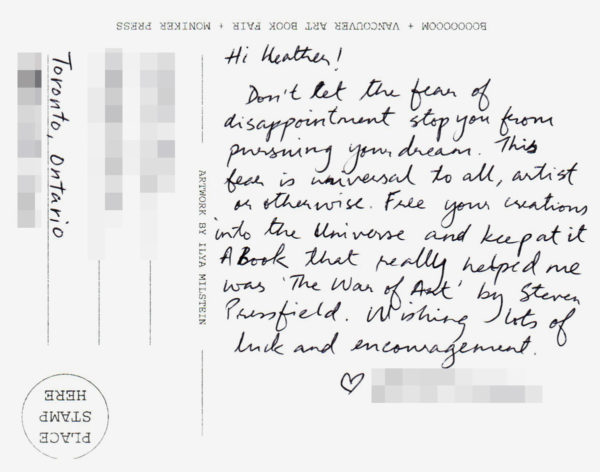 BOOOOOOOM + VANCOUVER ART BOOK FAIR + MONIKER PRESS
Hi Heather!
Don't let the fear of
disappointment stop you from
pursuing your dream. This
fear is universal to all, artist
or otherwise. Free your creations
into the Universe and keep at it
A Book that really helped me
was 'The War of Art' by Steven
Pressfield. Wishing lots of
luck and encouragement.
♡
ARTWORK BY ILYA MILSTEIN
Toronto, Ontario
PLACE
STAMP
HERE